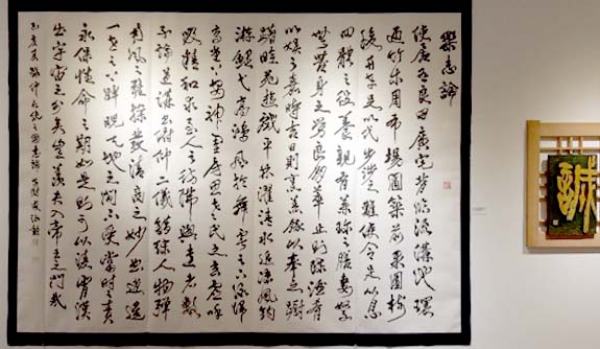 樂志論
使居有良田廣宅背山臨流溝池環
匝竹木周布場圃築前果園樹
後舟車足以代步涉之難使令足以息
四體之役養親有兼珍之膳妻孥
無苦身之勞良朋萃止則陳酒肴
以娛之嘉時吉日則烹羔豚以奉之躕
躇畦苑遊戲平林濯清水追涼風釣
游鯉弋高鴻風於舞雩之下詠歸
高堂之上安神閨房思老氏之玄虛呼
吸精和求至人之彷彿與達者數
子論道講書俯仰二儀錯綜人物彈
南風之雅操發清商之妙曲逍遙
一世之上睥睨天地之間不受當時之責
永保性命之期如是則可以凌霄漢
出宇宙之外矣豈羨夫入帝王之門哉
誠